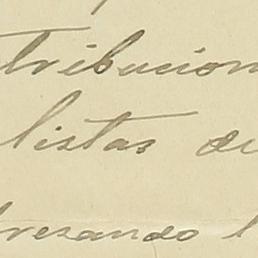 tribucion
listas de
presando l